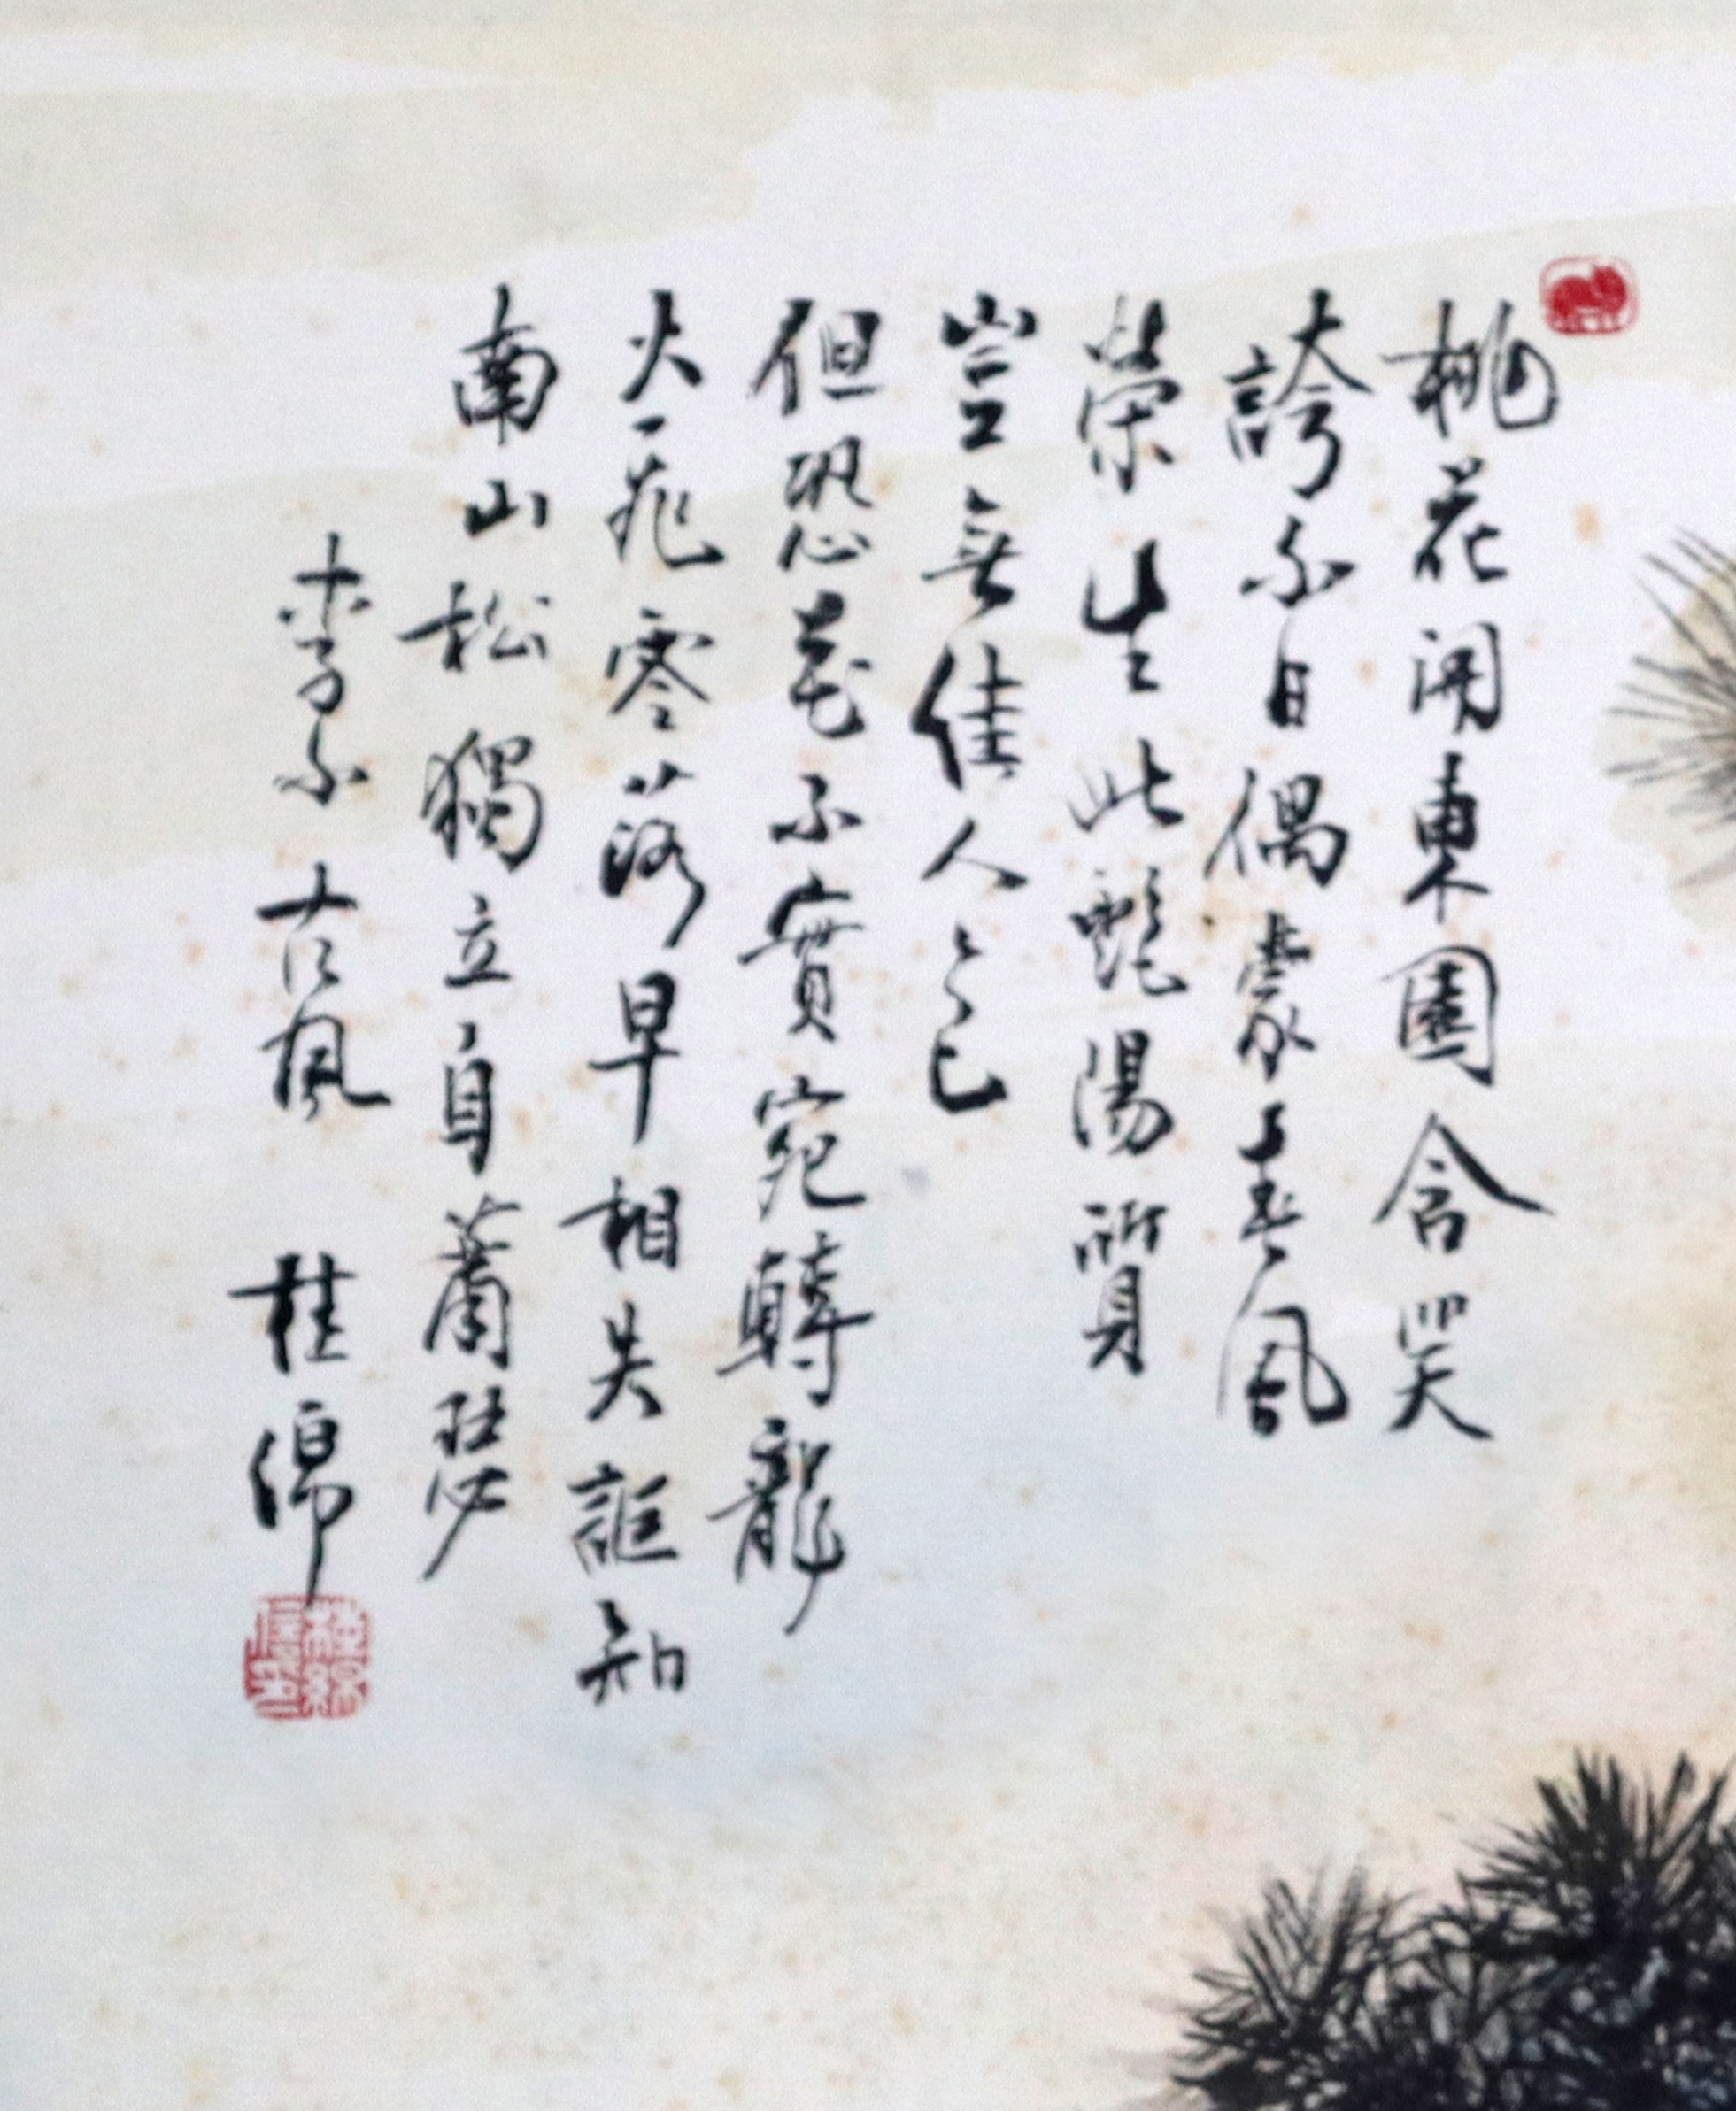 桃花開東園含笑
誇白日偶蒙春風
榮生此艷陽質
豈無佳人色
但恐花不實宛轉龍
火飛零落早相失詎知
南山松獨立自蕭瑟
李白古風 桂綿